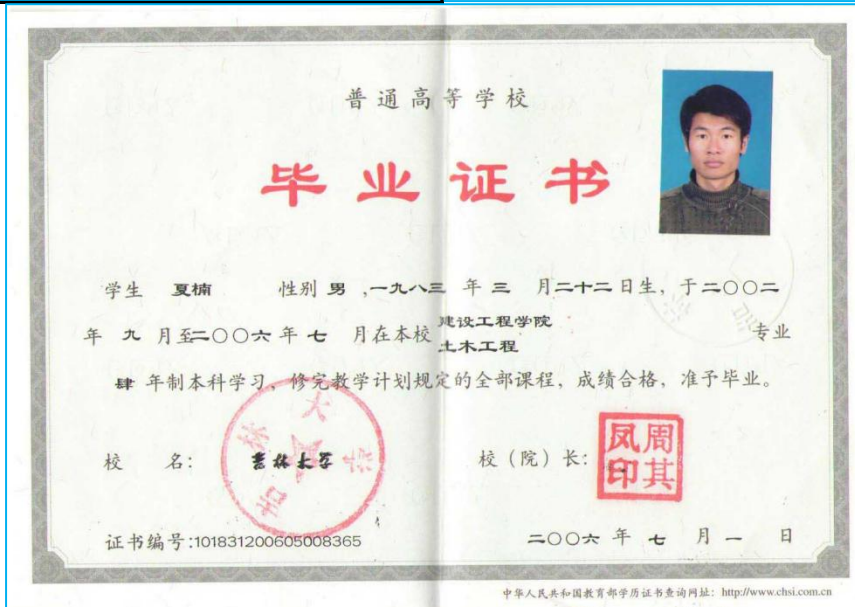 普通高等学校
毕业证书
学生 夏楠 性别 男 ,一九八三 年 三 月二十二日生，于二〇〇二
年 九 月至二〇〇六年 七 月在本校 建设工程学院 土木工程 专业
肆 年制本科学习，修完教学计划规定的全部课程，成绩合格，准予毕业。
校 名： 吉林大学 校（院）长： 周其凤印
吉林大学
证书编号:101831200605008365 二〇〇六 年 七 月 一 日
中华人民共和国教育部学历证书查询网址：http://www.chsi.com.cn